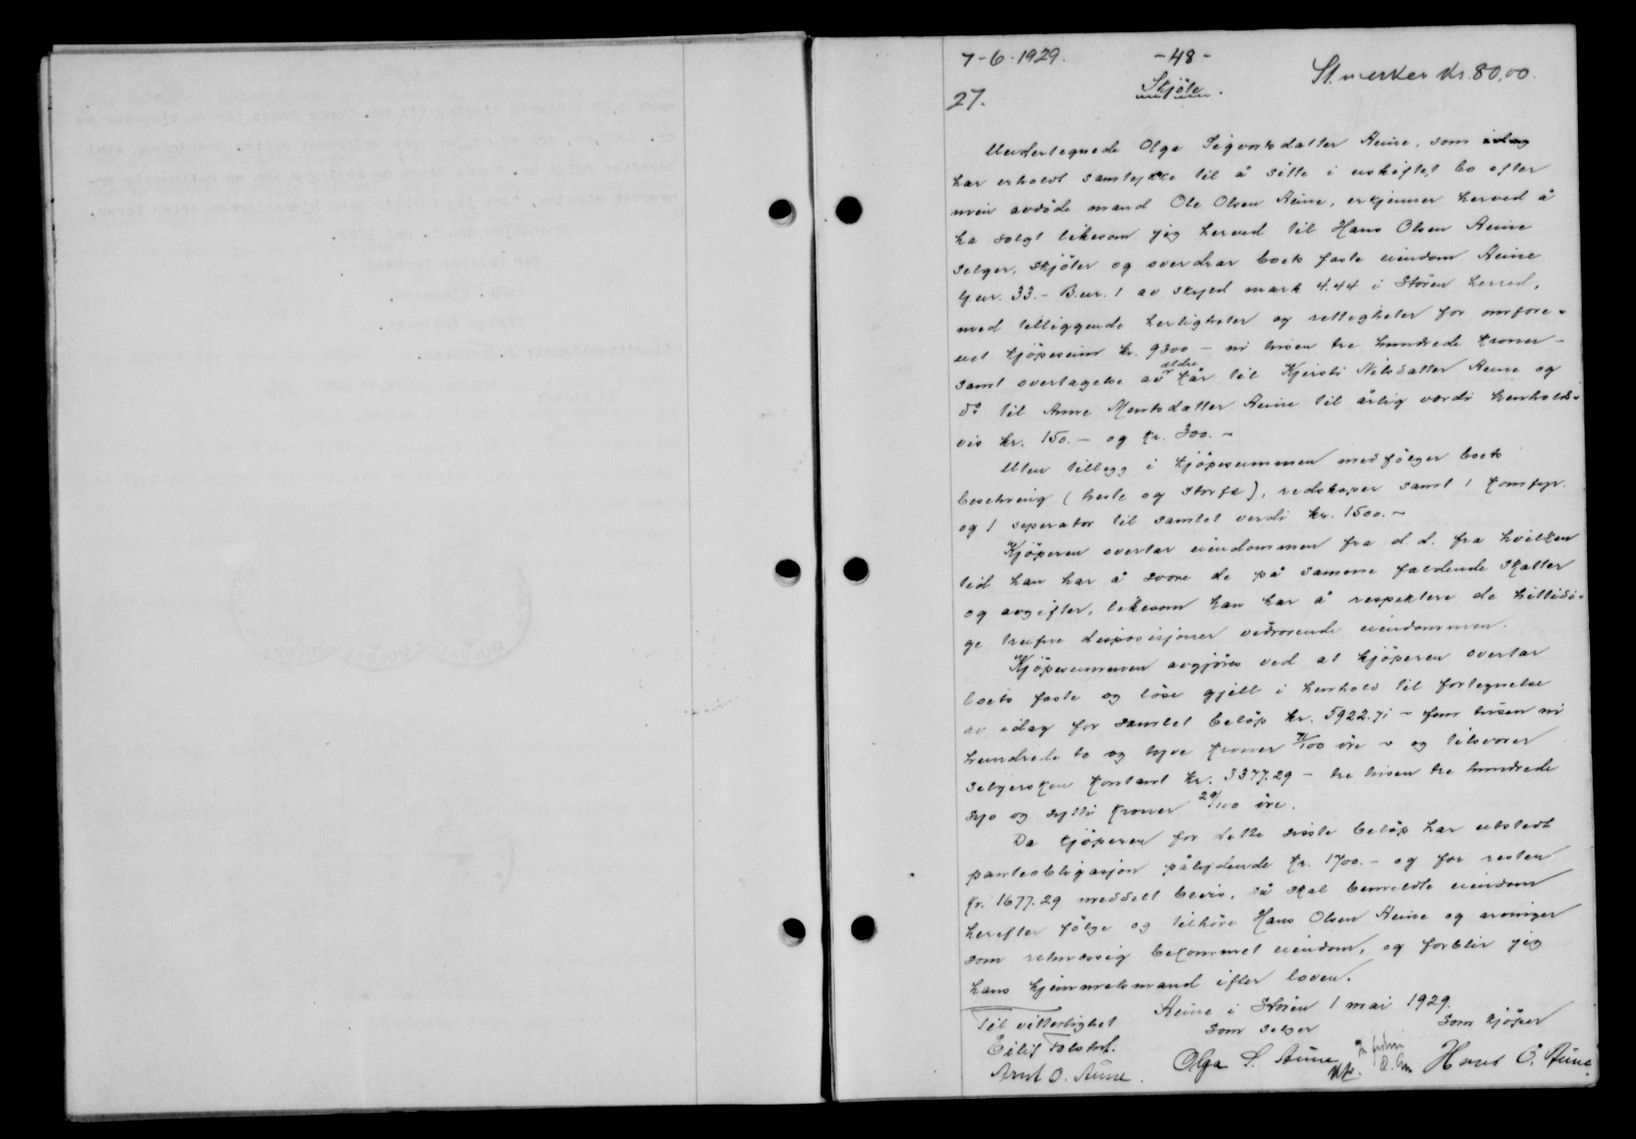 7-6-1929. -48- St.merker Kr. 80,00.
27. Skjöte.
Undertegnede Olga Sigvartsdatter Aune, som idag
har erholdt samtykke til å sitte i uskiftet bo efter
min avdöde mand Ole Olsen Aune, erkjenner herved å
ha solgt likesom jeg herved til Hans Olsen Aune
selger, skjöter og overdrar boets faste eiendom Aune
G.nr. 33.- B.nr. 1 av skyld mark 4.44 i Stören herred,
med tilliggende herligheter og rettigheter for omfore-
net kjöpesum kr. 9300 - ni tusen tre hundrede kroner -
samt overtagelse av ældre kår til Kjersti Nilsdatter Aune og
do til Anne Mentsdatter Aune til årlig værdi henholds-
vis kr. 150.- og kr. 300.-
Uten tillegg i kjöpesummen medfölger boets
besetning (heste og storfe), redskaper samt 1 komfyr
og 1 seperator til samlet verdi kr. 1500.-
Kjöperen overtar eiendommen fra d.d. fra hvilken
tid han har å svare de på samme faldende skatter
og avgifter, likesom han har å respektere de hittidi-
ge trufne disposisjoner vedrörende eiendommen.
Kjöpesummen avgjöres ved at kjöperen overtar
boets faste og löse gjeld i henhold til fortegnelse
av idag for samlet belöp kr. 5922.71 - fem tusen ni
hundrede to og tyve kroner 71/100 öre - og tilsvarer
selgersken kontant kr. 3377.29 - tre tusen tre hundrede
syv og sytti kroner 29/100 öre.
Da kjöperen for dette siste belöp har utstedt
panteobligasjon pålydende kr. 1700.- og for resten
kr. 1677.29 meddelt bevis, så skal bemeldte eiendom
herefter fölge og tilhöre Hans Olsen Aune og arvinger
som retmæssig bekommet eiendom, og forblir jeg
hans hjemmelsmand efter loven.
Aune i Stören 1 mai 1929.
Til vitterlighet som selger som kjöper
Eilif Folstad. Olga S. Aune Hans O. Aune.
Arnt O. Aune.